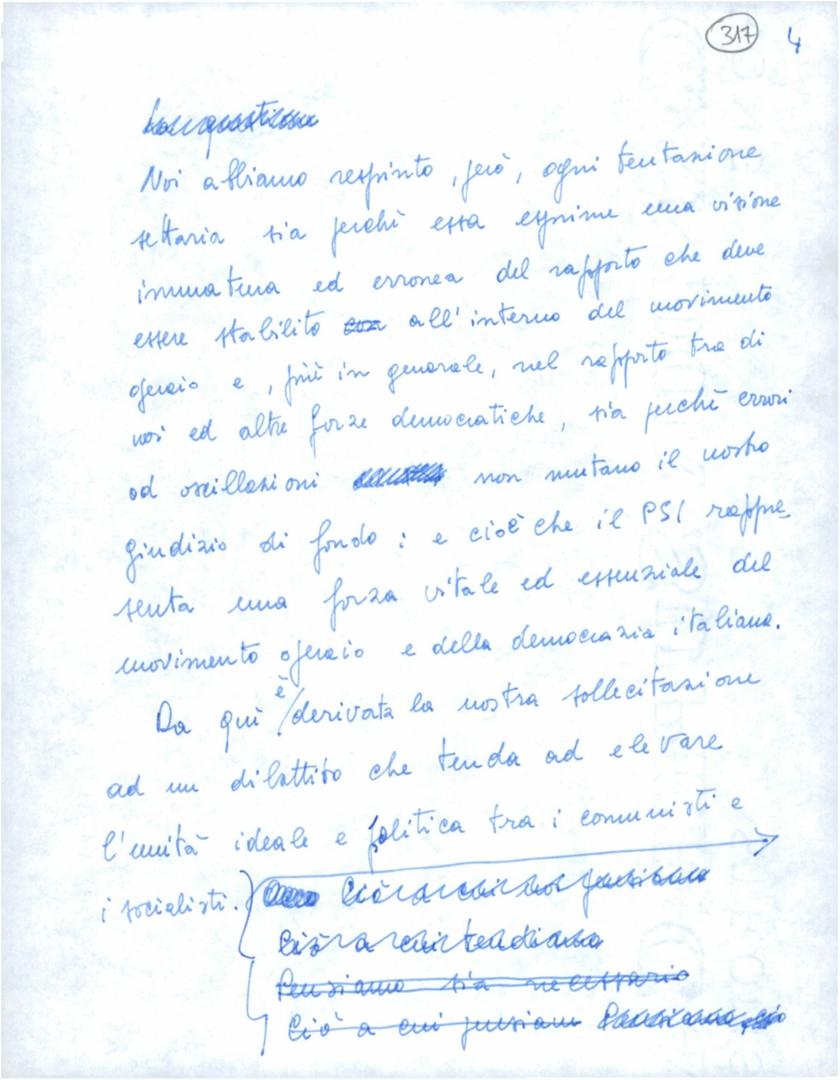 317 4
Noi abbiamo respinto, però, ogni tentazione
settaria sia perchè essa esprime una visione
immatura ed erronea del rapporto che deve
essere stabilito con all'interno del movimento
operaio e, più in generale, nel rapporto tra di
noi ed altre forze democratiche, sia perchè errori
od oscillazioni non mutano il nostro
giudizio di fondo: e cioè che il PSI rappre_
senta una forza vitale ed essenziale del
movimento operaio e della democrazia italiana.
Da qui è/derivata la nostra sollecitazione
ad un dibattito che tenda ad elevare
l'unità ideale e politica tra i comunisti e
i socialisti. Ciò a cui noi pensiamo
Ciò a cui tendiamo
Pensiamo sia necessario
Ciò a cui pensiamo